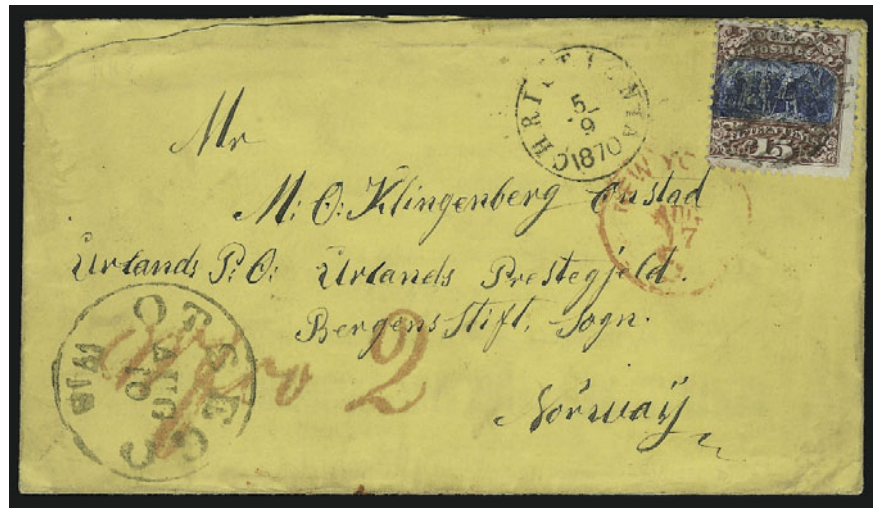 POSTAGE
15
CHRISTIANIA
5
9
1870
NEW YO
AUG
17
Mr
M: O: Klingenberg Onstad
Urlands P: O: Urlands Prestegjeld.
Bergens Stift, Sogn.
Norway
OTSEGO
AUG
10
WIS
2